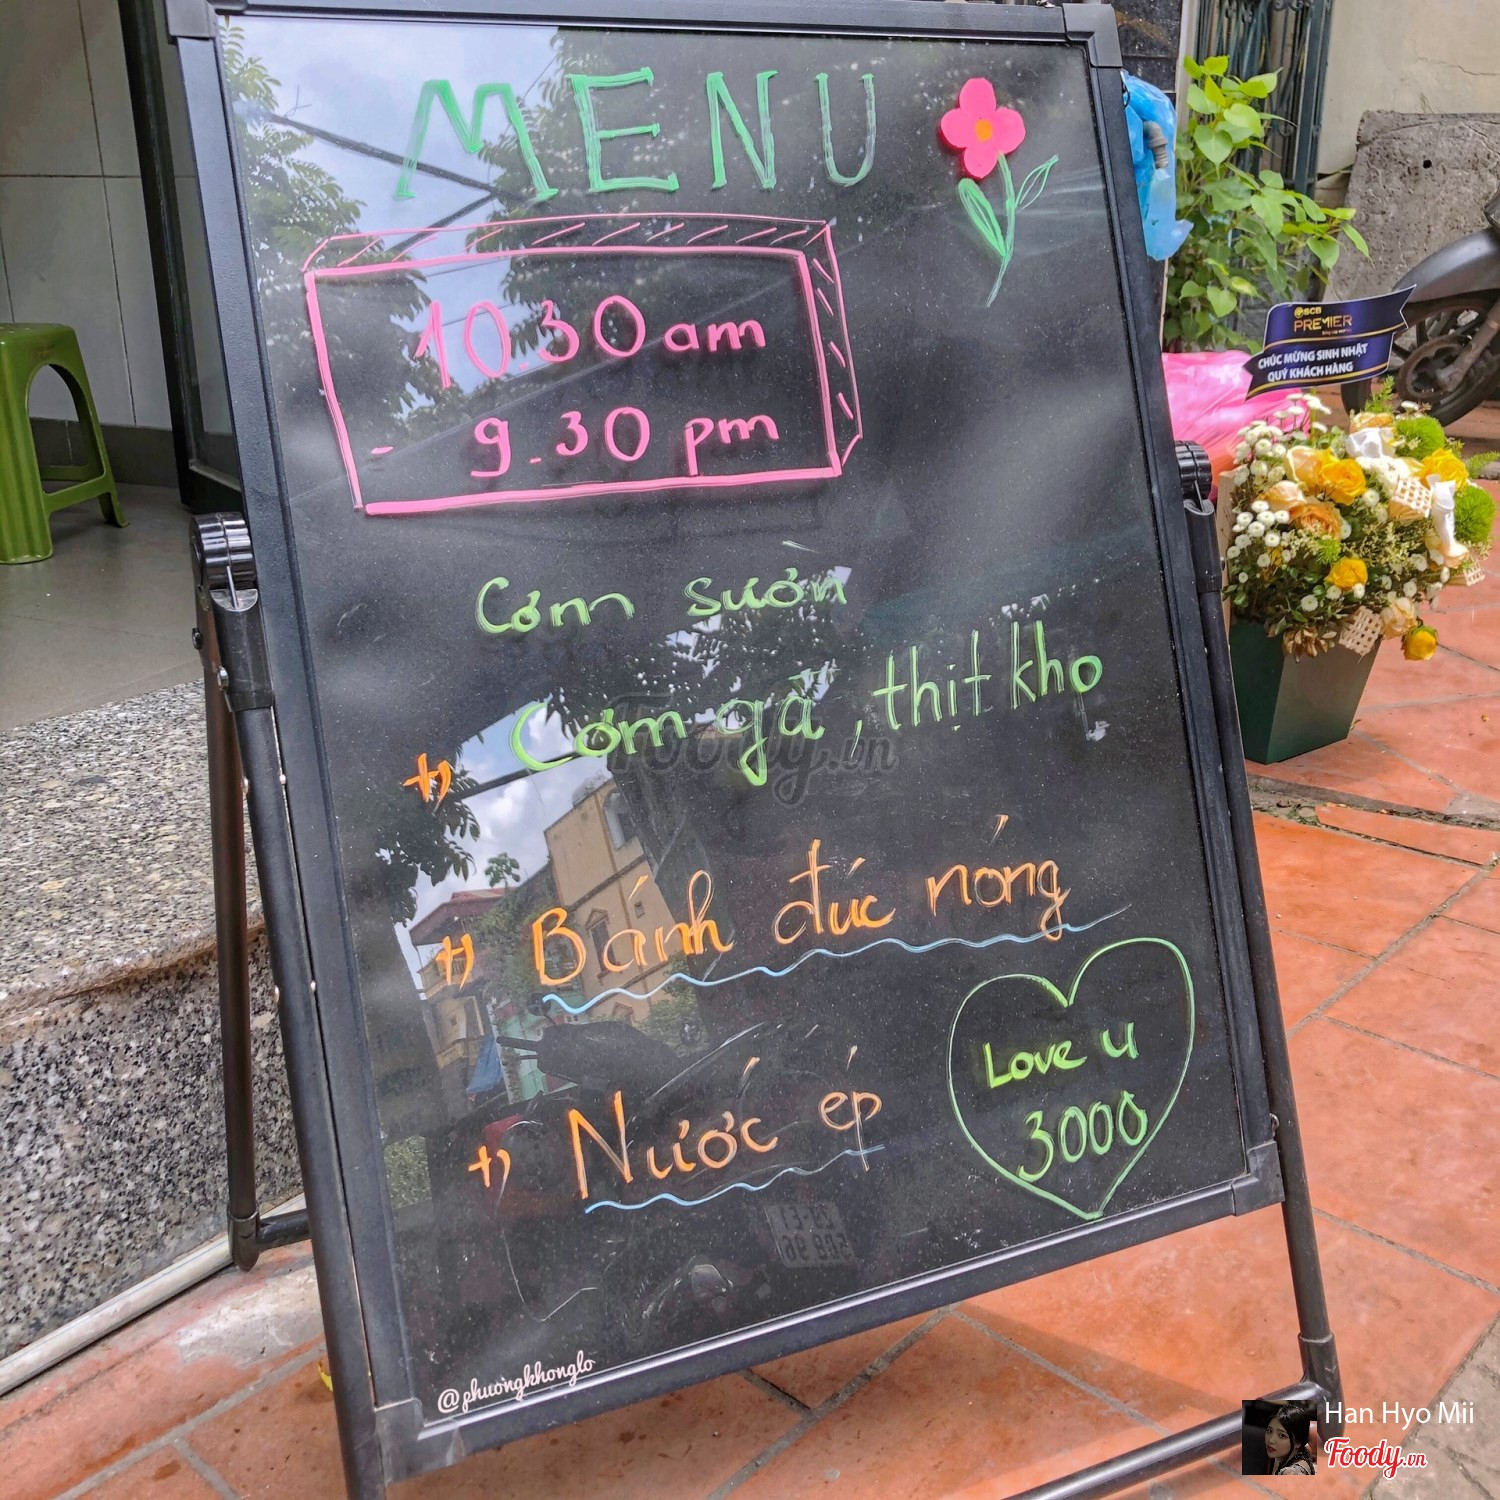 MENU
10.30 am
- 9.30 pm
Cơm sườn
+) Cơm gà, thịt kho
+) Bánh đúc nóng
+) Nước ép
Love u
3000
@phuongkhonglo
SCB
PREMIER
CHÚC MỪNG SINH NHẬT
QUÝ KHÁCH HÀNG
Foody.vn
Han Hyo Mii
Foody.vn